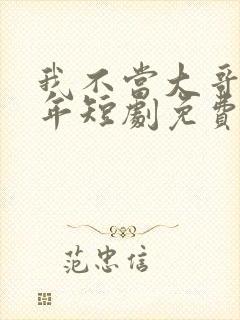 我不當大哥
年短劇免費
范忠信